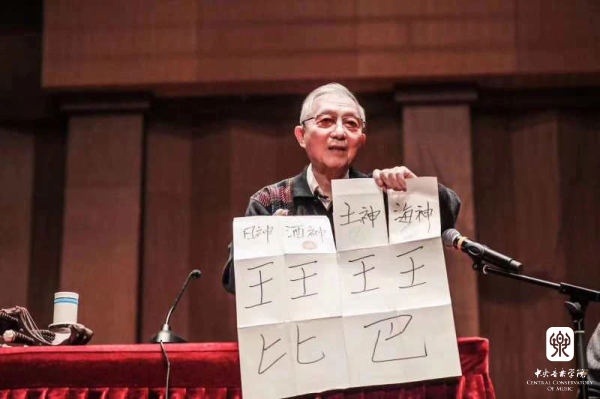 日神 酒神 土神 海神
王 王 王 王
比 巴
中央音乐学院
CENTRAL CONSERVATORY
OF MUSIC